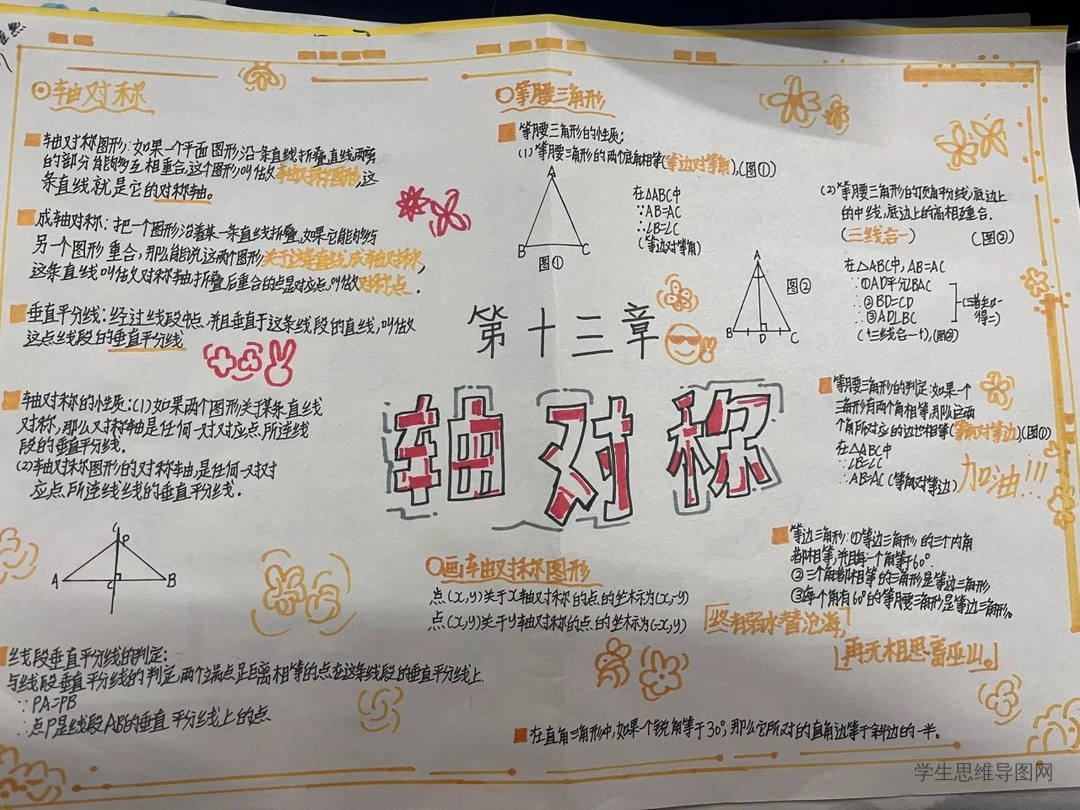 轴对称
轴对称图形:如果一个平面图形沿一条直线折叠,直线两旁
的部分能够互相重合,这个图形叫做轴对称图形,这
条直线就是它的对称轴。
成轴对称:把一个图形沿着某一条直线折叠,如果它能够与
另一个图形重合,那么能说这两个图形关于这条直线成轴对称,
这条直线叫做对称轴,折叠后重合的点是对应点,叫做对称点.
垂直平分线:经过线段中点,并且垂直于这条线段的直线,叫做
这点线段的垂直平分线
轴对称的性质:(1)如果两个图形关于某条直线
对称,那么对称轴是任何一对对应点所连线
段的垂直平分线.
(2)轴对称图形的对称轴,是任何一对对
应点所连线线的垂直平分线.
P
A
C
B
线段垂直平分线的判定:
与线段垂直平分线的判定,两个端点距离相等的点在这条线段的垂直平分线上.
∵PA=PB
∴点P是线段AB的垂直平分线上的点
第十三章
轴对称
画轴对称图形
点(x,y)关于x轴对称的点的坐标为(x,-y)
点(x,y)关于y轴对称的点的坐标为(-x,y)
等腰三角形
等腰三角形的性质:
(1)等腰三角形的两个底角相等(等边对等角),(图①)
A
B
C
图①
在△ABC中
∵AB=AC
∴∠B=∠C
(等边对等角)
(2)等腰三角形的顶角平分线,底边上
的中线,底边上的高相互重合.
(三线合一)
(图②)
A
B
D
C
图②
在△ABC中,AB=AC
∴①AD平分∠BAC
∴②BD=CD
∴③AD⊥BC
(三线合一),(图②)
等腰三角形的判定:如果一个
三角形有两个角相等,那么这两
个角所对应的边也相等(等角对等边)(图①)
在△ABC中
∵∠B=∠C
∴AB=AC(等角对等边)
加油!!!
等边三角形:①等边三角形的三个内角
都相等,并且每一个角等于60°.
②三个角都相等的三角形是等边三角形
③每个角有60°的等腰三角形是等边三角形。
终有弱水替沧海,
再无相思寄巫山。
在直角三角形中,如果个锐角等于30°,那么它所对的直角边等于斜边的一半。
学生思维导图网